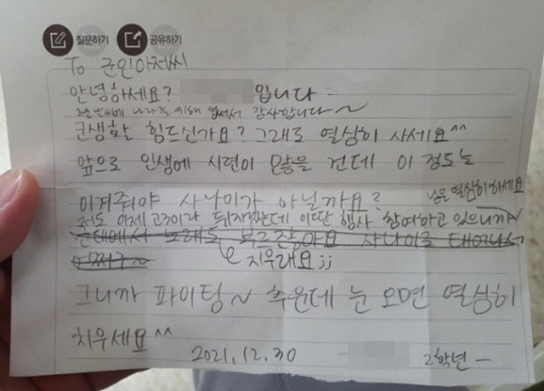 질문하기 공유하기
To 군인아저씨
안녕하세요? 입니다
추운 날씨에 나라를 위해 힘써서 감사합니다~
군생활 힘드신가요? 그래도 열심히 사세요^^
앞으로 인생에 시련이 많을 건데 이 정도는
이겨줘야 사나이가 아닐까요?
저도 이제 고3이라 뒤지겠는데 이딴 행사 참여하고 있으니까
눈 열심히 하세요
군대에서 노래도 부르잖아요 사나이로 태어나서
어쩌구~
지우래요;;
그니까 파이팅~ 추운데 눈 오면 열심히
치우세요^^
2021.12.30 2학년-